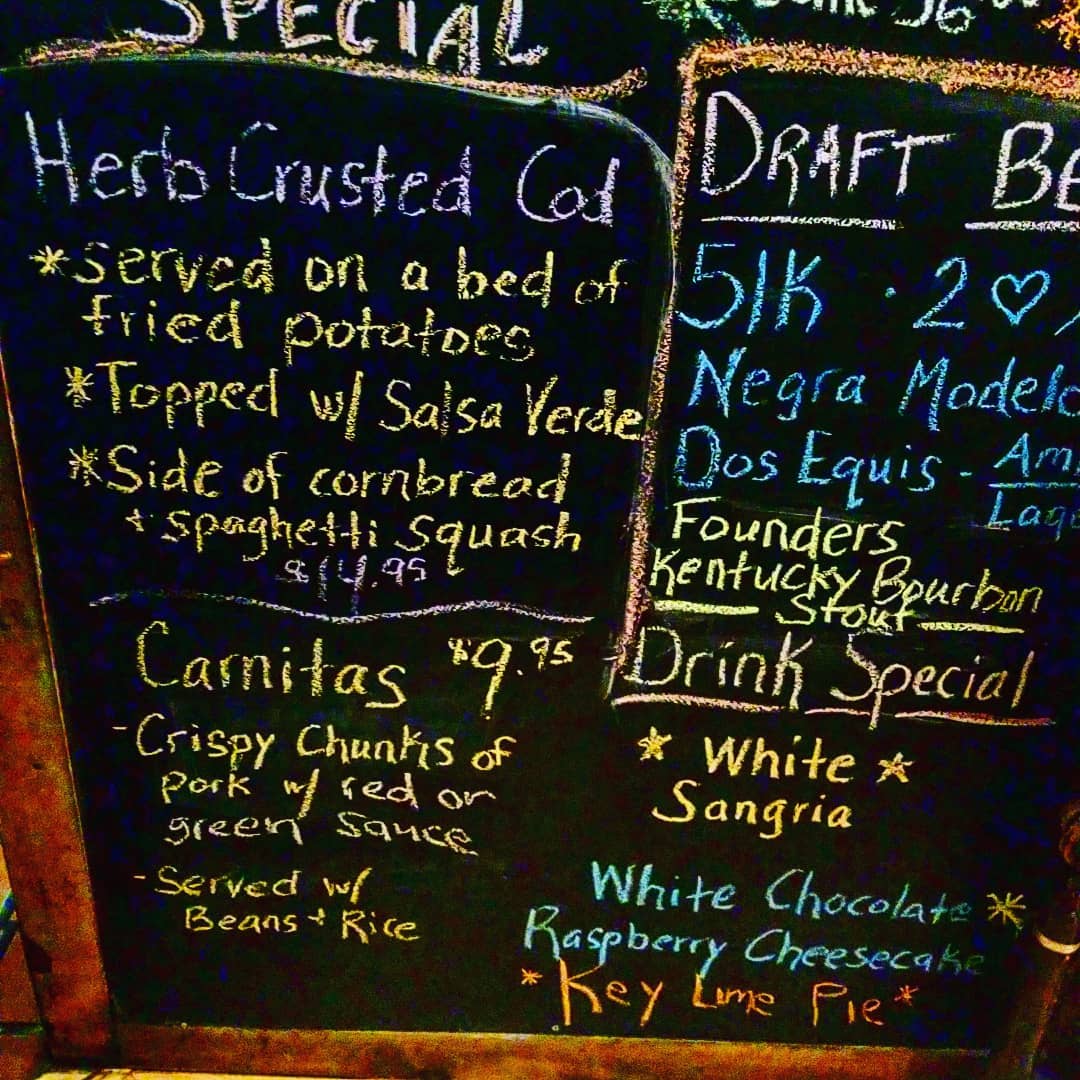 SPECIAL
Herb Crusted Cod
*Served on a bed of
fried potatoes
*Topped w/ Salsa Verde
*Side of cornbread
+ spaghetti squash
$14.95
Carnitas $9.95
-Crispy Chunks of
pork w/ red or
green sauce
-Served w/
Beans + Rice
DRAFT BE
51K · 2♡
Negra Modelo
Dos Equis - Am
Lag
Founders
Kentucky Bourbon
Stout
Drink Special
* White *
Sangria
White Chocolate *
Raspberry Cheesecake
*Key Lime Pie*